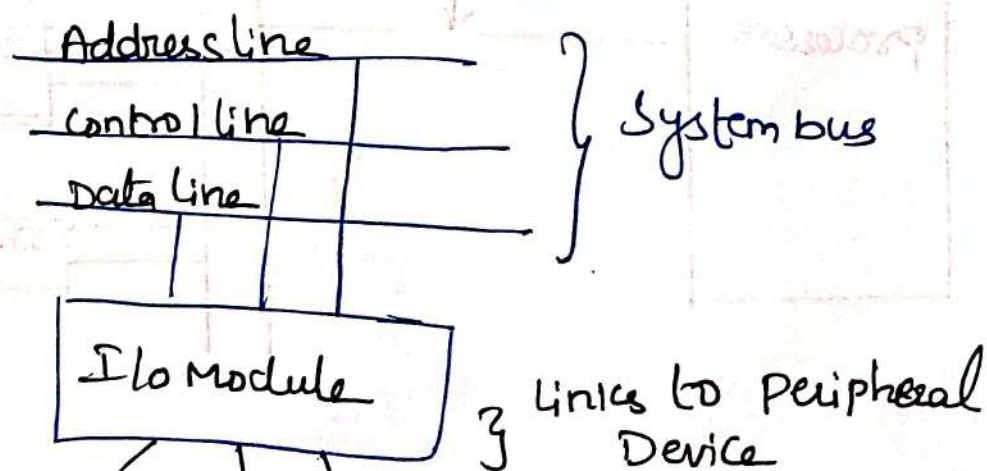 Address line
Control line
Data line
System bus
I/o Module
Links to Peripheral
Device